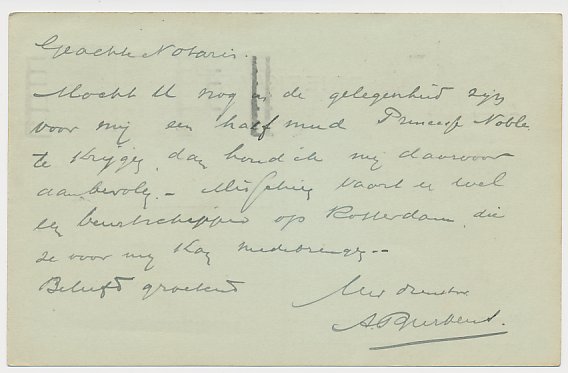 Geachte Notaris.
Mocht U nog in de gelegenheid zijn
voor mij een half mud Princesse Noble
te krijgen, dan houd ik mij daarvoor
aanbevolen. – Misschien vaart er wel
een beurtschipper op Rotterdam, die
ze voor mij kan medebrengen. –
Beleefd groetend
Uw dienstw